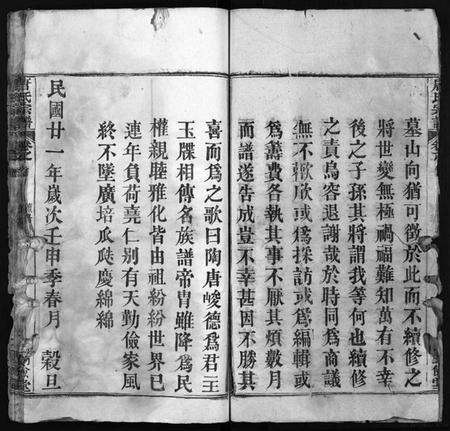 墓山向猶可徵於此而不續修之
將世變無極禍福難知萬有不幸
後之子孫其將謂我等何也續修
之責烏容退謝哉於時同為商議
無不歡欣或為採訪或為編輯或
為籌費各執其事不厭其煩數月
而譜遂告成豈不幸甚因不勝其
喜而為之歌曰陶唐峻德為君王
玉牒相傳名族譜帝胄雖降為民
權親睦雅化皆由祖紛紛世界已
連年負荷嘉仁別有天勤儉家風
終不墜廣培瓜瓞慶綿綿
民國廿一年歲次壬申季春月 穀旦